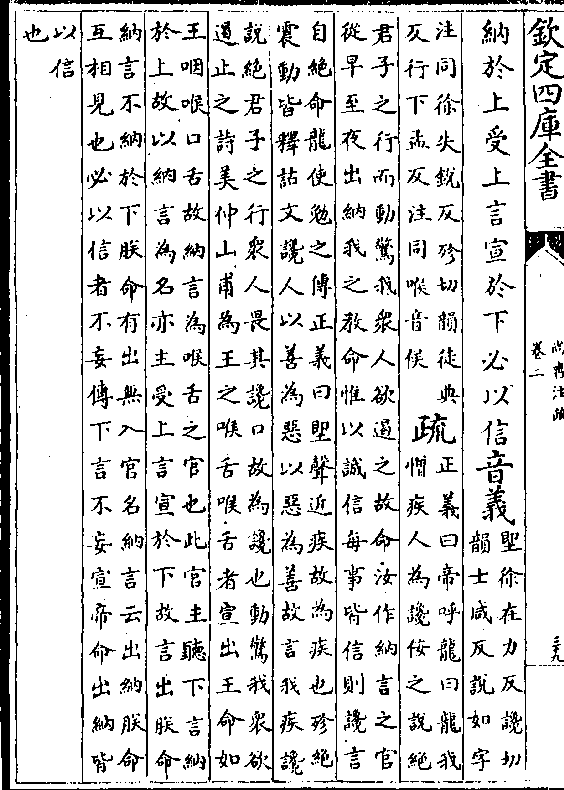 欽定四庫全書
尚書注疏
卷二
三九
納於上受上言宣於下必以信音義
堲徐在力反讒切
韻士咸反說如字
注同徐失銳反殄切韻徒典
反行下孟反注同喉音侯
疏
正義曰帝呼龍曰龍我
憎疾人為讒佞之說絕
君子之行而動驚我衆人欲遏之故命汝作納言之官
從早至夜出納我之教命惟以誠信每事皆信則讒言
自絕命龍使勉之傳正義曰堲聲近疾故為疾也殄絕
震動皆釋詁文讒人以善為惡以惡為善故言我疾讒
說絕君子之行衆人畏其讒口故為讒也動驚我衆欲
遏止之詩美仲山甫為王之喉舌喉舌者宣出王命如
王咽喉口舌故納言為喉舌之官也此官主聽下言納
於上故以納言為名亦主受上言宣於下故言出朕命
納言不納於下朕命有出無入官名納言云出納朕命
互相見也必以信者不妄傳下言不妄宣帝命出納皆
以信
也